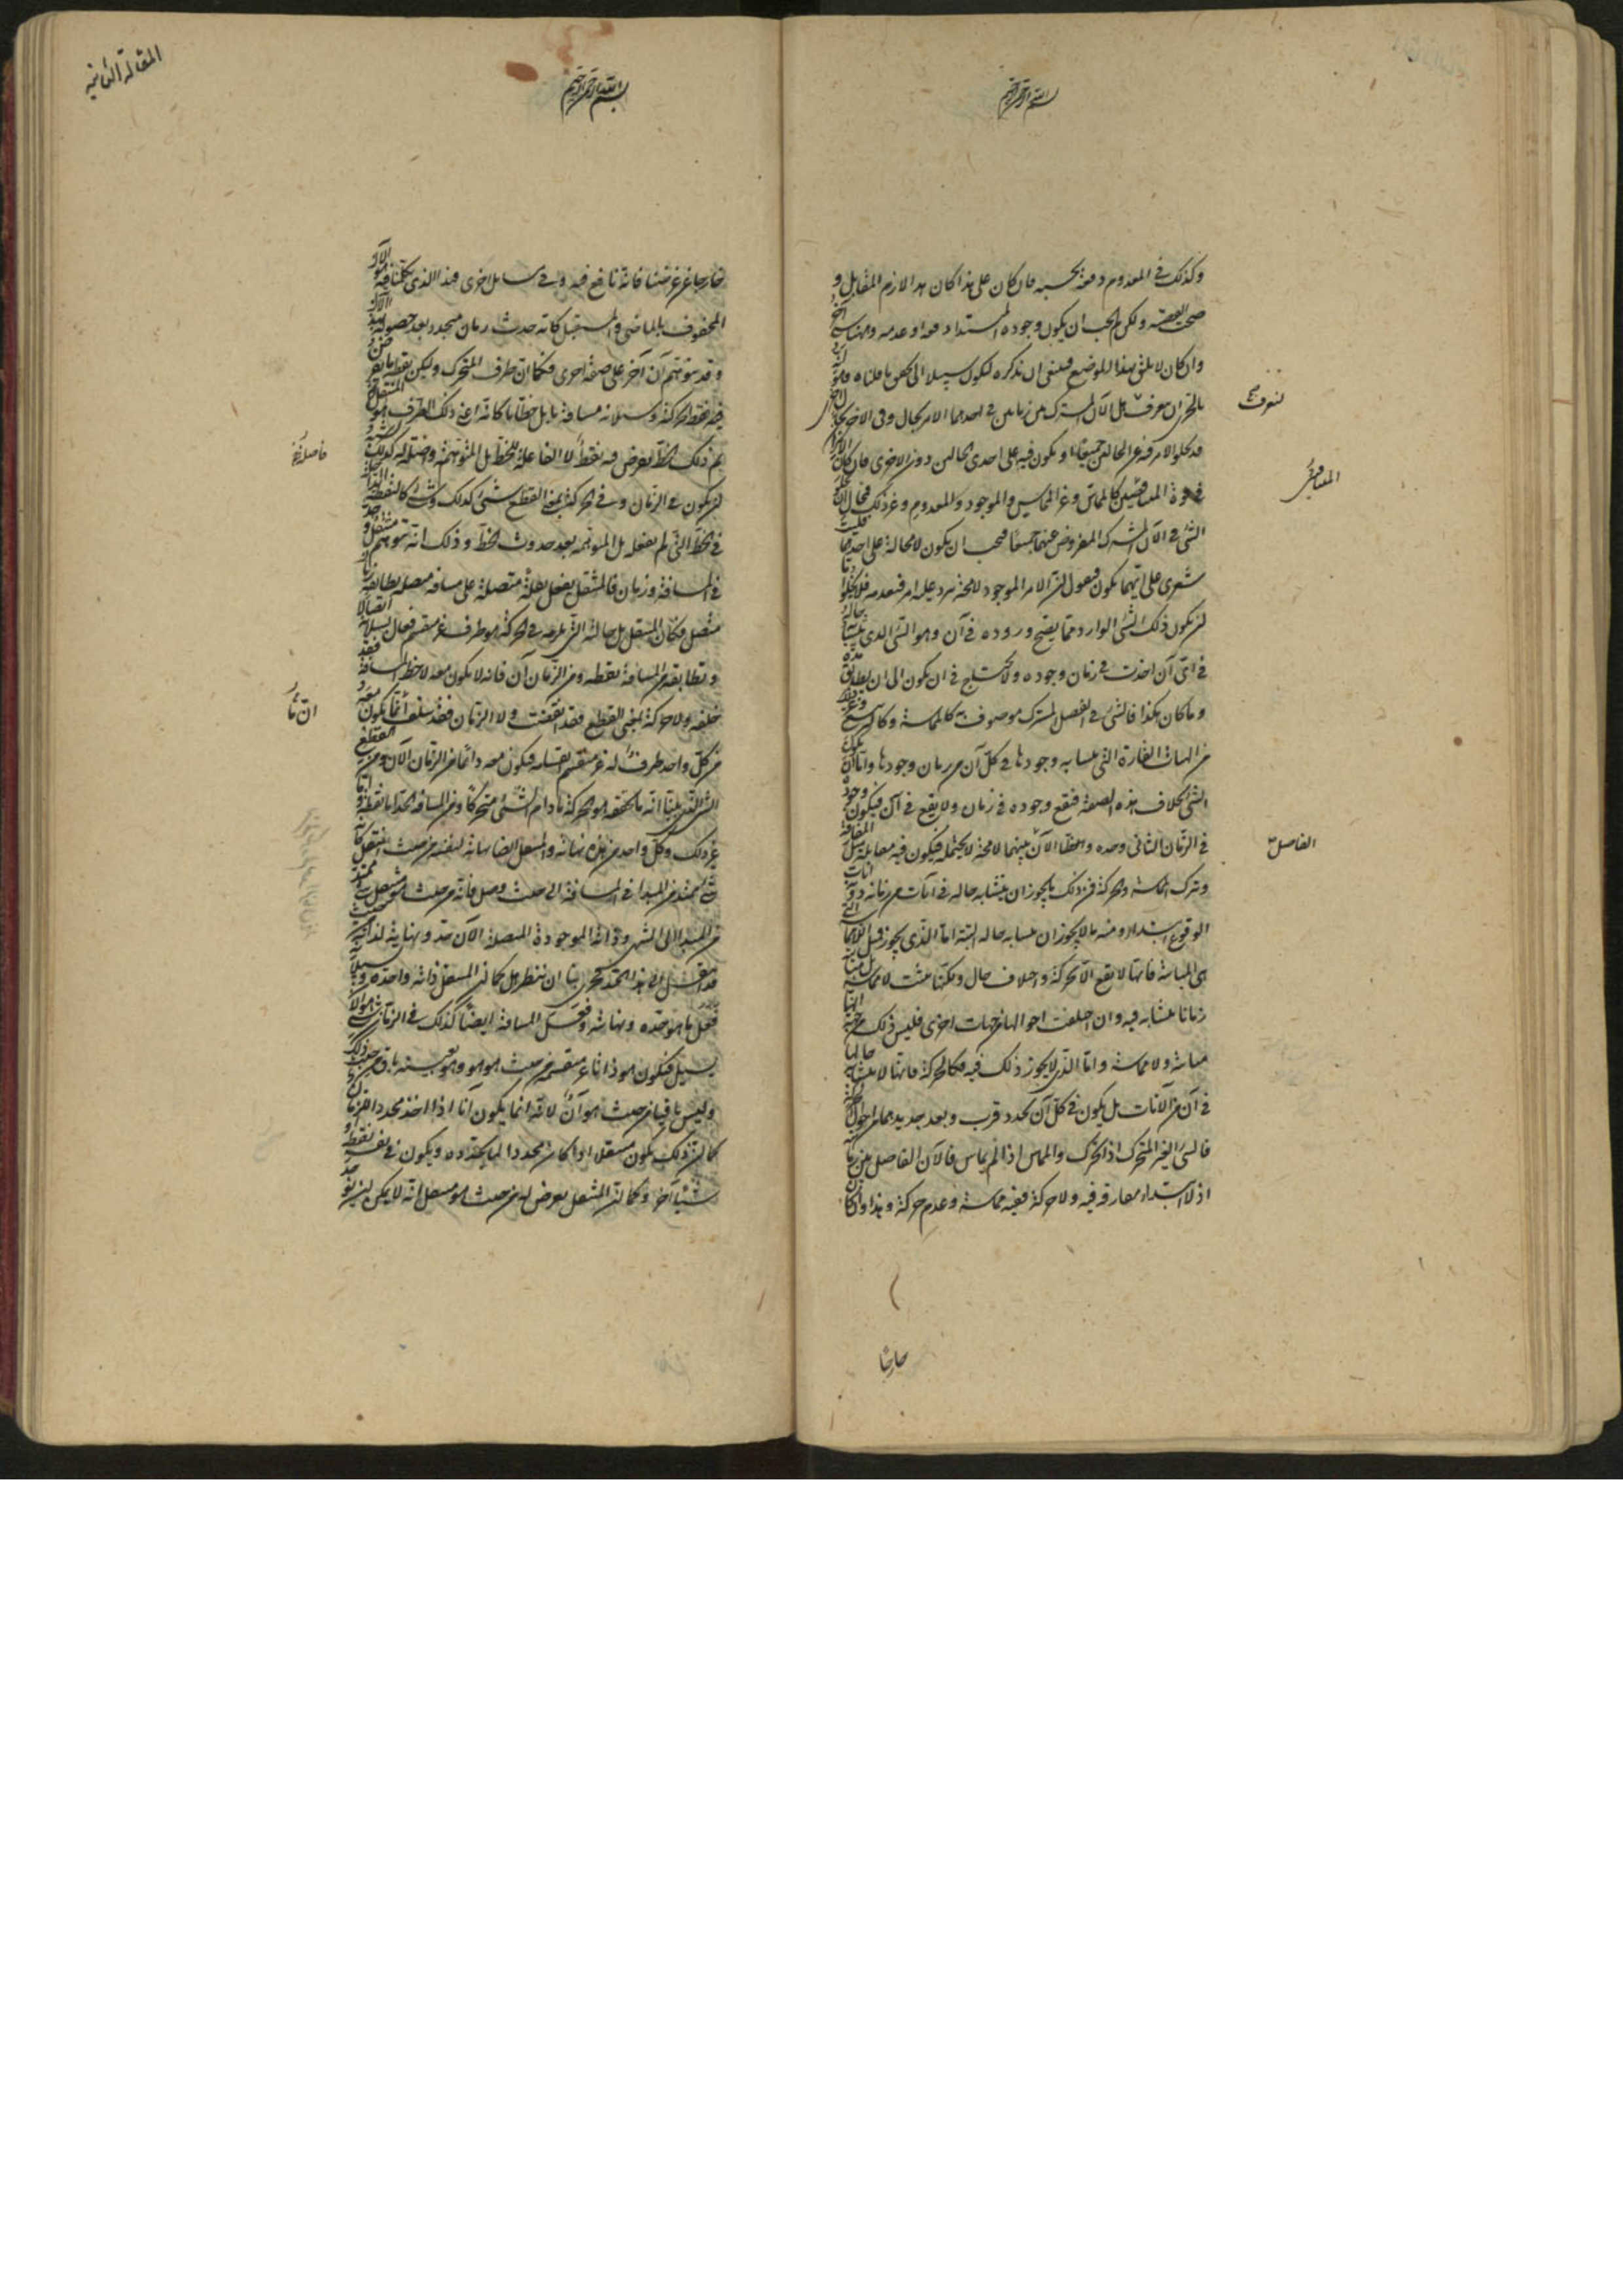 بسم الله الرحمن الرحيم
وكذلك في المعدوم دفعة بحسبه فان كان على هذا كان هذا لازم المقابل و
صحت القضية ولكن لم يجب ان يكون وجوده المبتدأ دفعة او عدمه وههنا شيء آخر
وان كان لا يليق بهذا الموضع فينبغي ان نذكره ليكون سبيلا الى تحقق ما قلناه وهو انه
بالحري ان نتعرف هل الآن المشترك بين زمانين في احدهما الامر بحال وفي الآخر بحال اخرى
قد يخلو الامر فيه عن الحالين جميعا او يكون فيه على احدى الحالين دون الاخرى فان كان الامران
في قوة المتناقضين كالمماس وغير المماس والموجود والمعدوم وغير ذلك فمحال ان يخلو
الشيء في الآن المشترك المفروض عنهما جميعا فيجب ان يكون لا محالة على احدهما فليت
شعري على ايهما يكون فنقول ان الامر الموجود لا محالة يرد عليه امر فيعدمه فلا يخلو اما
ان يكون ذلك الشيء الوارد مما يصح وروده في آن وهو الشيء الذي يتشابه حاله
في اي آن اخذت في زمان وجوده ولا يحتاج في ان يكون الى ان يطابق مدة
وما كان هكذا فالشيء في الفصل المشترك موصوف به كالمماسة وكالتربيع وغير ذلك
من الهيئات القارة التي يتشابه وجودها في كل آن من زمان وجودها واما ان يكون
الشيء بخلاف هذه الصفة فيقع وجوده في زمان ولا يقع في آن فيكون وجوده
في الزمان الثاني وحده والآن الفاصل بينهما لا يحتمله فيكون فيه مقابله مثل المفارقة
وترك المماسة والحركة فمن ذلك ما يجوز ان يتشابه حاله في آنات من زمانه دون آنات
الوقوع ابتداء ومنه ما لا يجوز ان يتشابه حاله البتة اما الذي يجوز فمثل اللامماسة التي
هي المباينة فانها لا تقع الا بحركة واختلاف حال ولكنها تثبت لا مماسة بل مباينة
زمانا يتشابه فيه وان اختلفت احوالها من جهات اخرى فليس ذلك من جهة انها
مباينة ولا مماسة واما الذي لا يجوز ذلك فيه فكالحركة فانها لا يتشابه حالها
في آن من الآنات بل يكون في كل آن تجدد قرب وبعد جديد هما من احوال الحركة
فالشيء الغير المتحرك اذا تحرك والمماس اذا لم يماس فالآن الفاصل بين زمانيه
اذ لا ابتداء مفارقة فيه ولا حركة ففيه مماسة وعدم حركة وهذا وان كان
خارجا
المتناقضين
الفاصل
المقالة الثانية
بسم الله الرحمن الرحيم
خارجا عن غرضنا فانه نافع فيه وفي مسائل اخرى فهذا الذي تكلمنا فيه هو الآن
المحفوف بالماضي والمستقبل كانه حدث زمان فحدد بعد حصوله بهذا الآن
وقد يتوهم آن آخر على صفة اخرى فكما ان طرف المتحرك وليكن نقطة ما يفرض
بحركته وسيلانه مسافة ما بل خطا ما كانه اعني ذلك الطرف هو المنتقل
ثم ذلك الخط يفرض فيه نقط لا الفاعلة للخط بل المتوهمة واصلة له كذلك يشبه
ان يكون في الزمان وفي الحركة بمعنى القطع شيء كذلك وشيء كالنقط الداخلة
في الخط التي لم تفعله بل المتوهمة بعد حدوث الخط وذلك انه يتوهم منتقل وحد
في المسافة وزمان فالمنتقل يفعل نقلة متصلة على مسافة متصلة يطابقها زمان
متصل فكان المنتقل بل حالته التي تلزمه في الحركة هو طرف غير منقسم فعال بسيلانه اتصالا
وتطابقه من المسافة نقطة ومن الزمان آن فانه لا يكون معه لا خط المسافة فقد
خلفه ولا الحركة بمعنى القطع فقد انقضت ولا الزمان فقد سلف انما يكون معه
من كل واحد طرف له غير منقسم انقسامه فيكون معه دائما من الزمان الآن ومن القطع
الشيء الذي بينا انه بالحقيقة هو الحركة ما دام الشيء متحركا ومن المسافة الحد اما نقطة واما
غير ذلك وكل واحد من هذه نهاية والمنتقل ايضا نهاية لنفسه من حيث انتقل كانه
شيء ممتد من المبدأ في المسافة الى حيث وصل فانه من حيث هو منتقل شيء ممتد
من المبدأ الى المنتهى وذاته الموجودة المتصلة الآن حد ونهاية لذاته من حيث
قد انتقل الى هذا الحد فحري بنا ان ننظر هل كما ان المنتقل ذاته واحدة وبسيلانه
فعل ما هو حده ونهايته وفعل المسافة ايضا كذلك في الزمان شيء هو الآن
يسيل فيكون هو ذاتا غير منقسمة من حيث هو هو وهو بعينه باق من حيث ذلك
وليس باقيا من حيث هو آن لانه انما يكون آنا اذا اخذ محددا للزمان
كما ان ذلك انما يكون منتقلا اذا كان محددا لما يحدده ويكون في نفسه نقطة او
شيئا آخر وكما ان المنتقل يعرض له من حيث هو منتقل انه لا يمكن ان يوجد